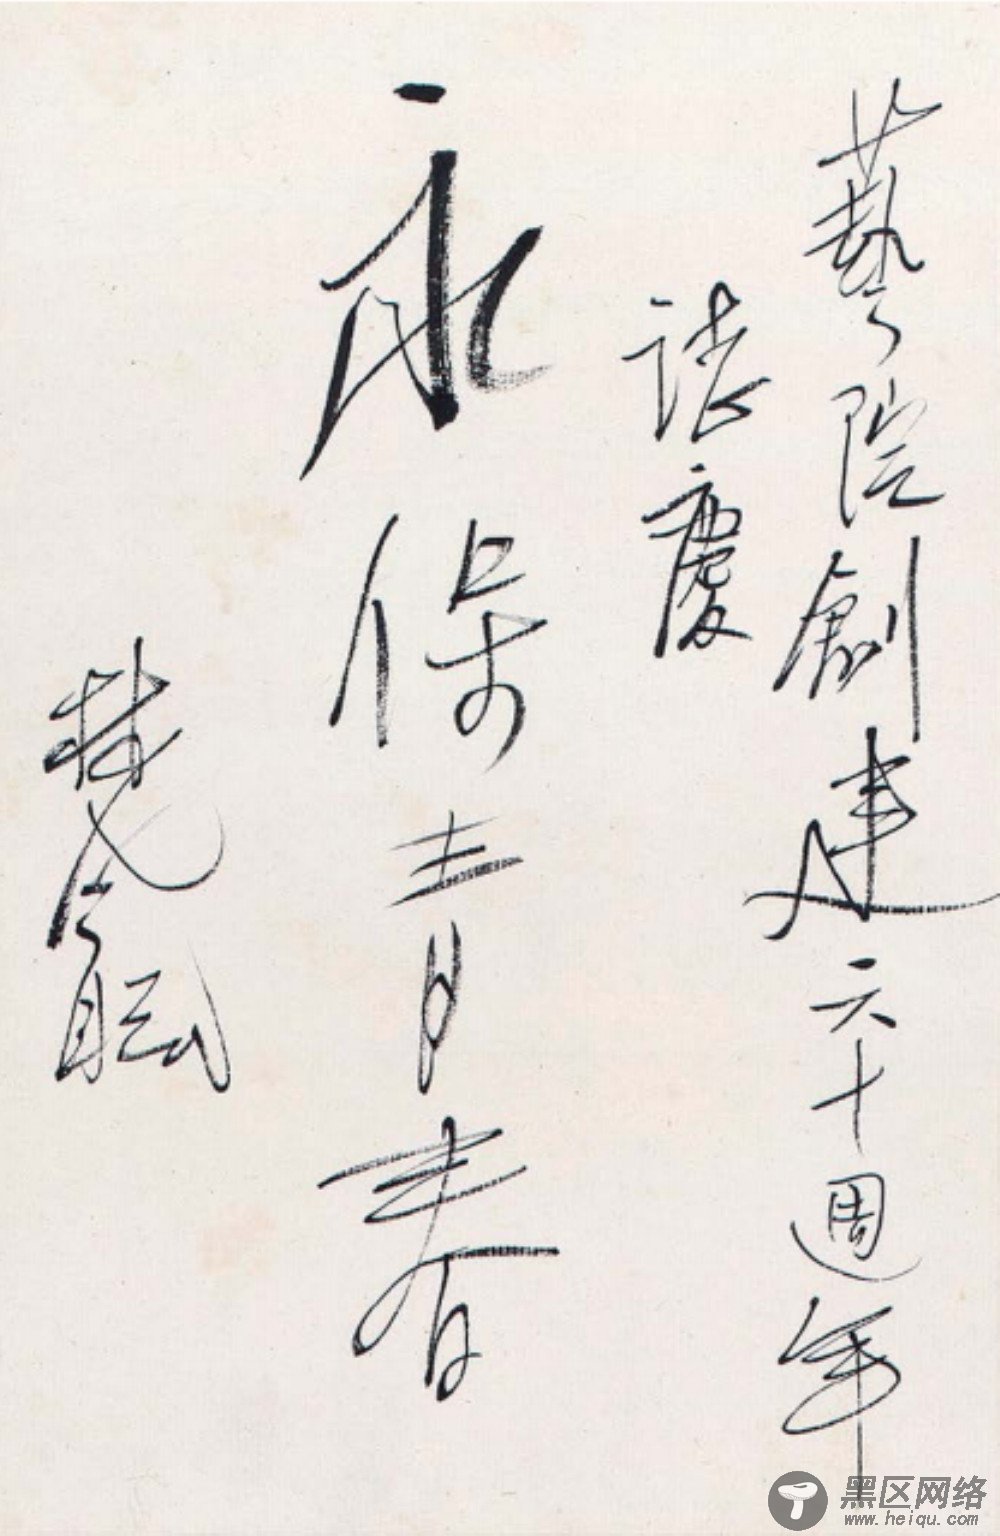 藝院創建六十週年
誌慶
永保青春
林風眠
黑区网络
www.heiqu.com